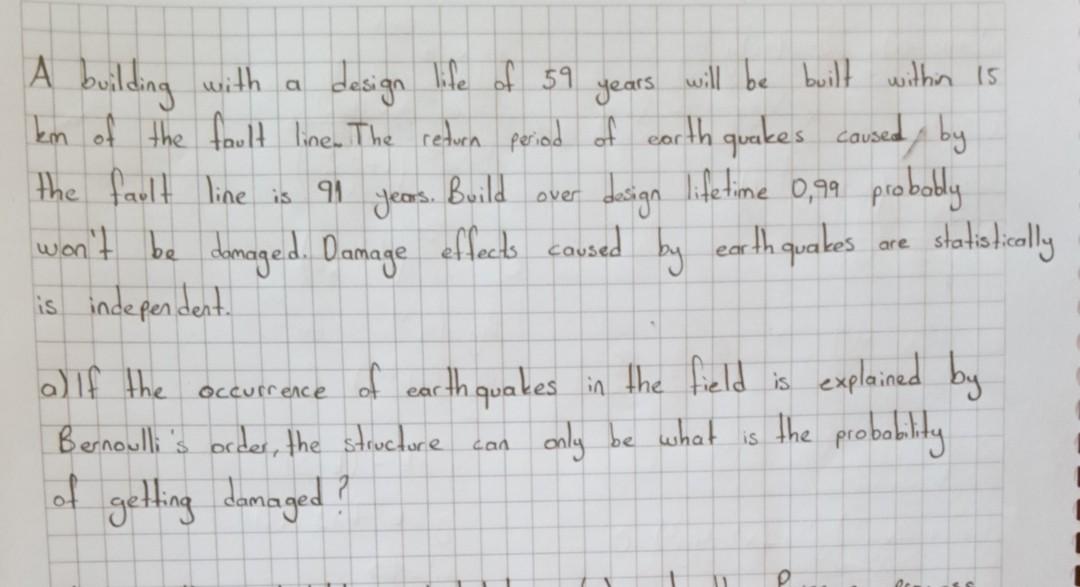 A building with a design life of 59 years will be built within 15
km of the fault line. The return period of earth quakes caused by
the fault line is 91 years. Build over design lifetime 0,99 probably
won't be damaged. Damage effects caused by earth quakes are statistically
is independent.
a) If the occurrence of earth quakes in the field is explained by
Bernoulli's order, the structure can only be what is the probability
of getting damaged?